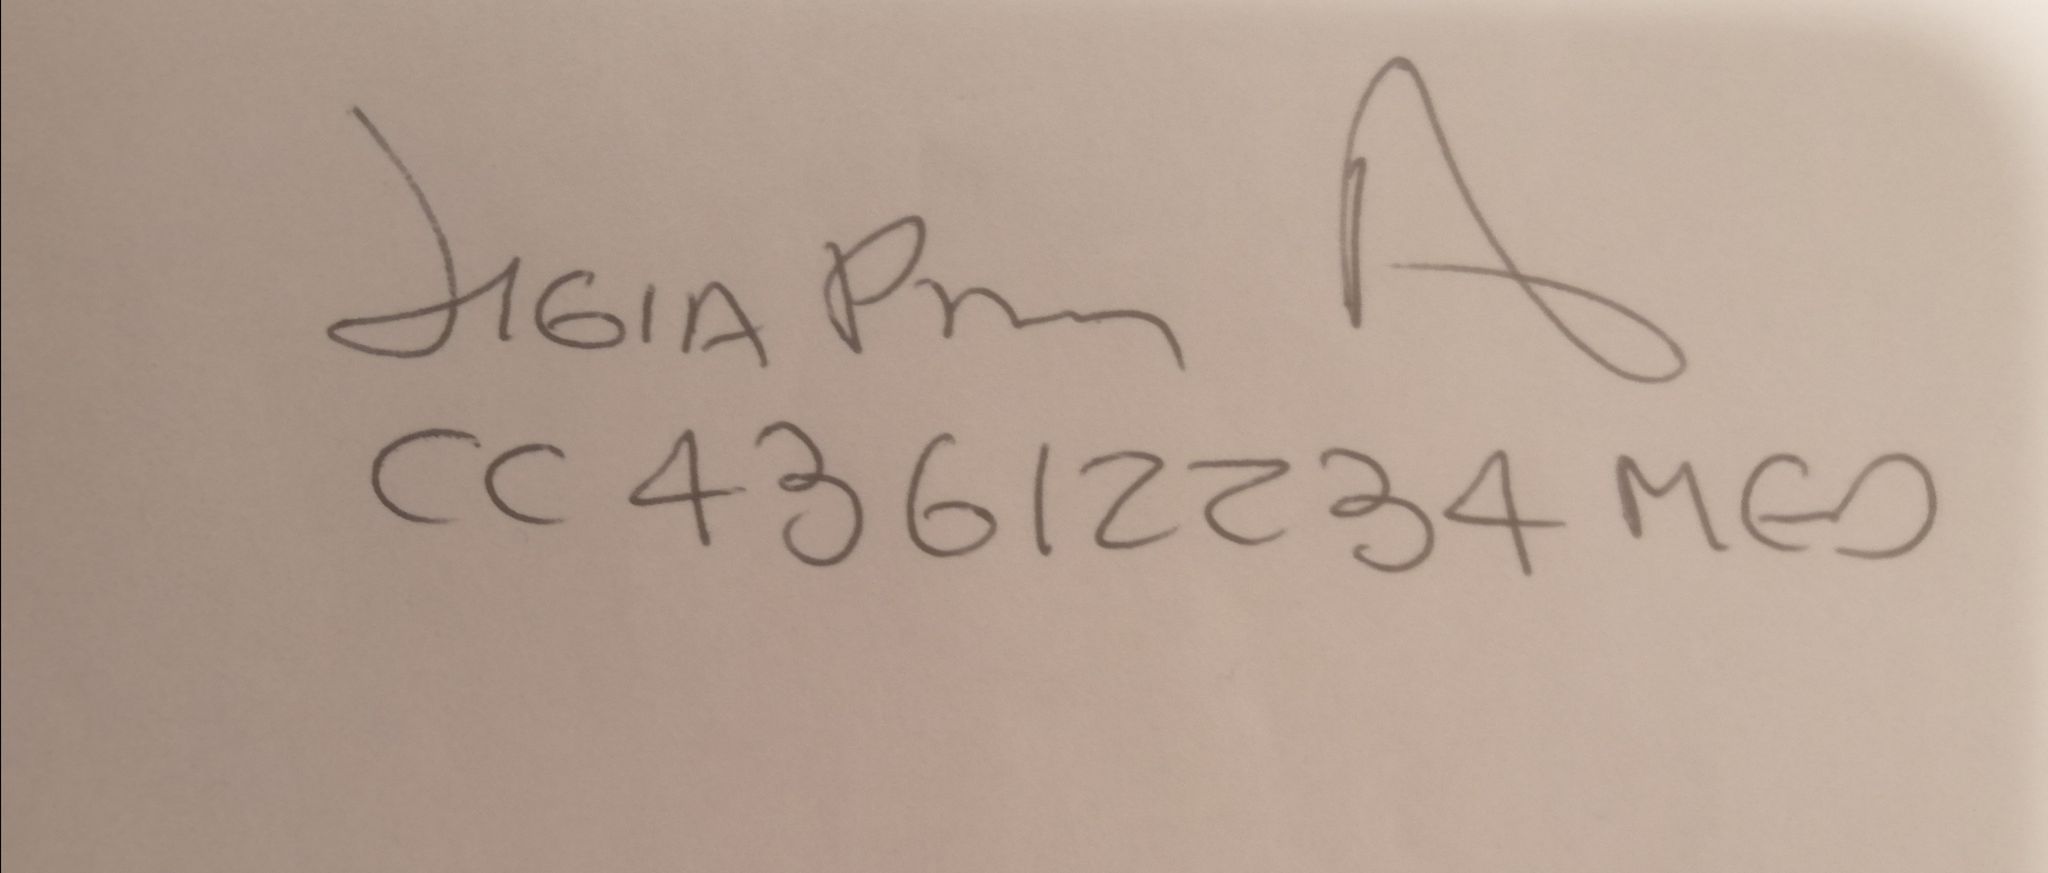 Ligia P A
CC 43612234 MED